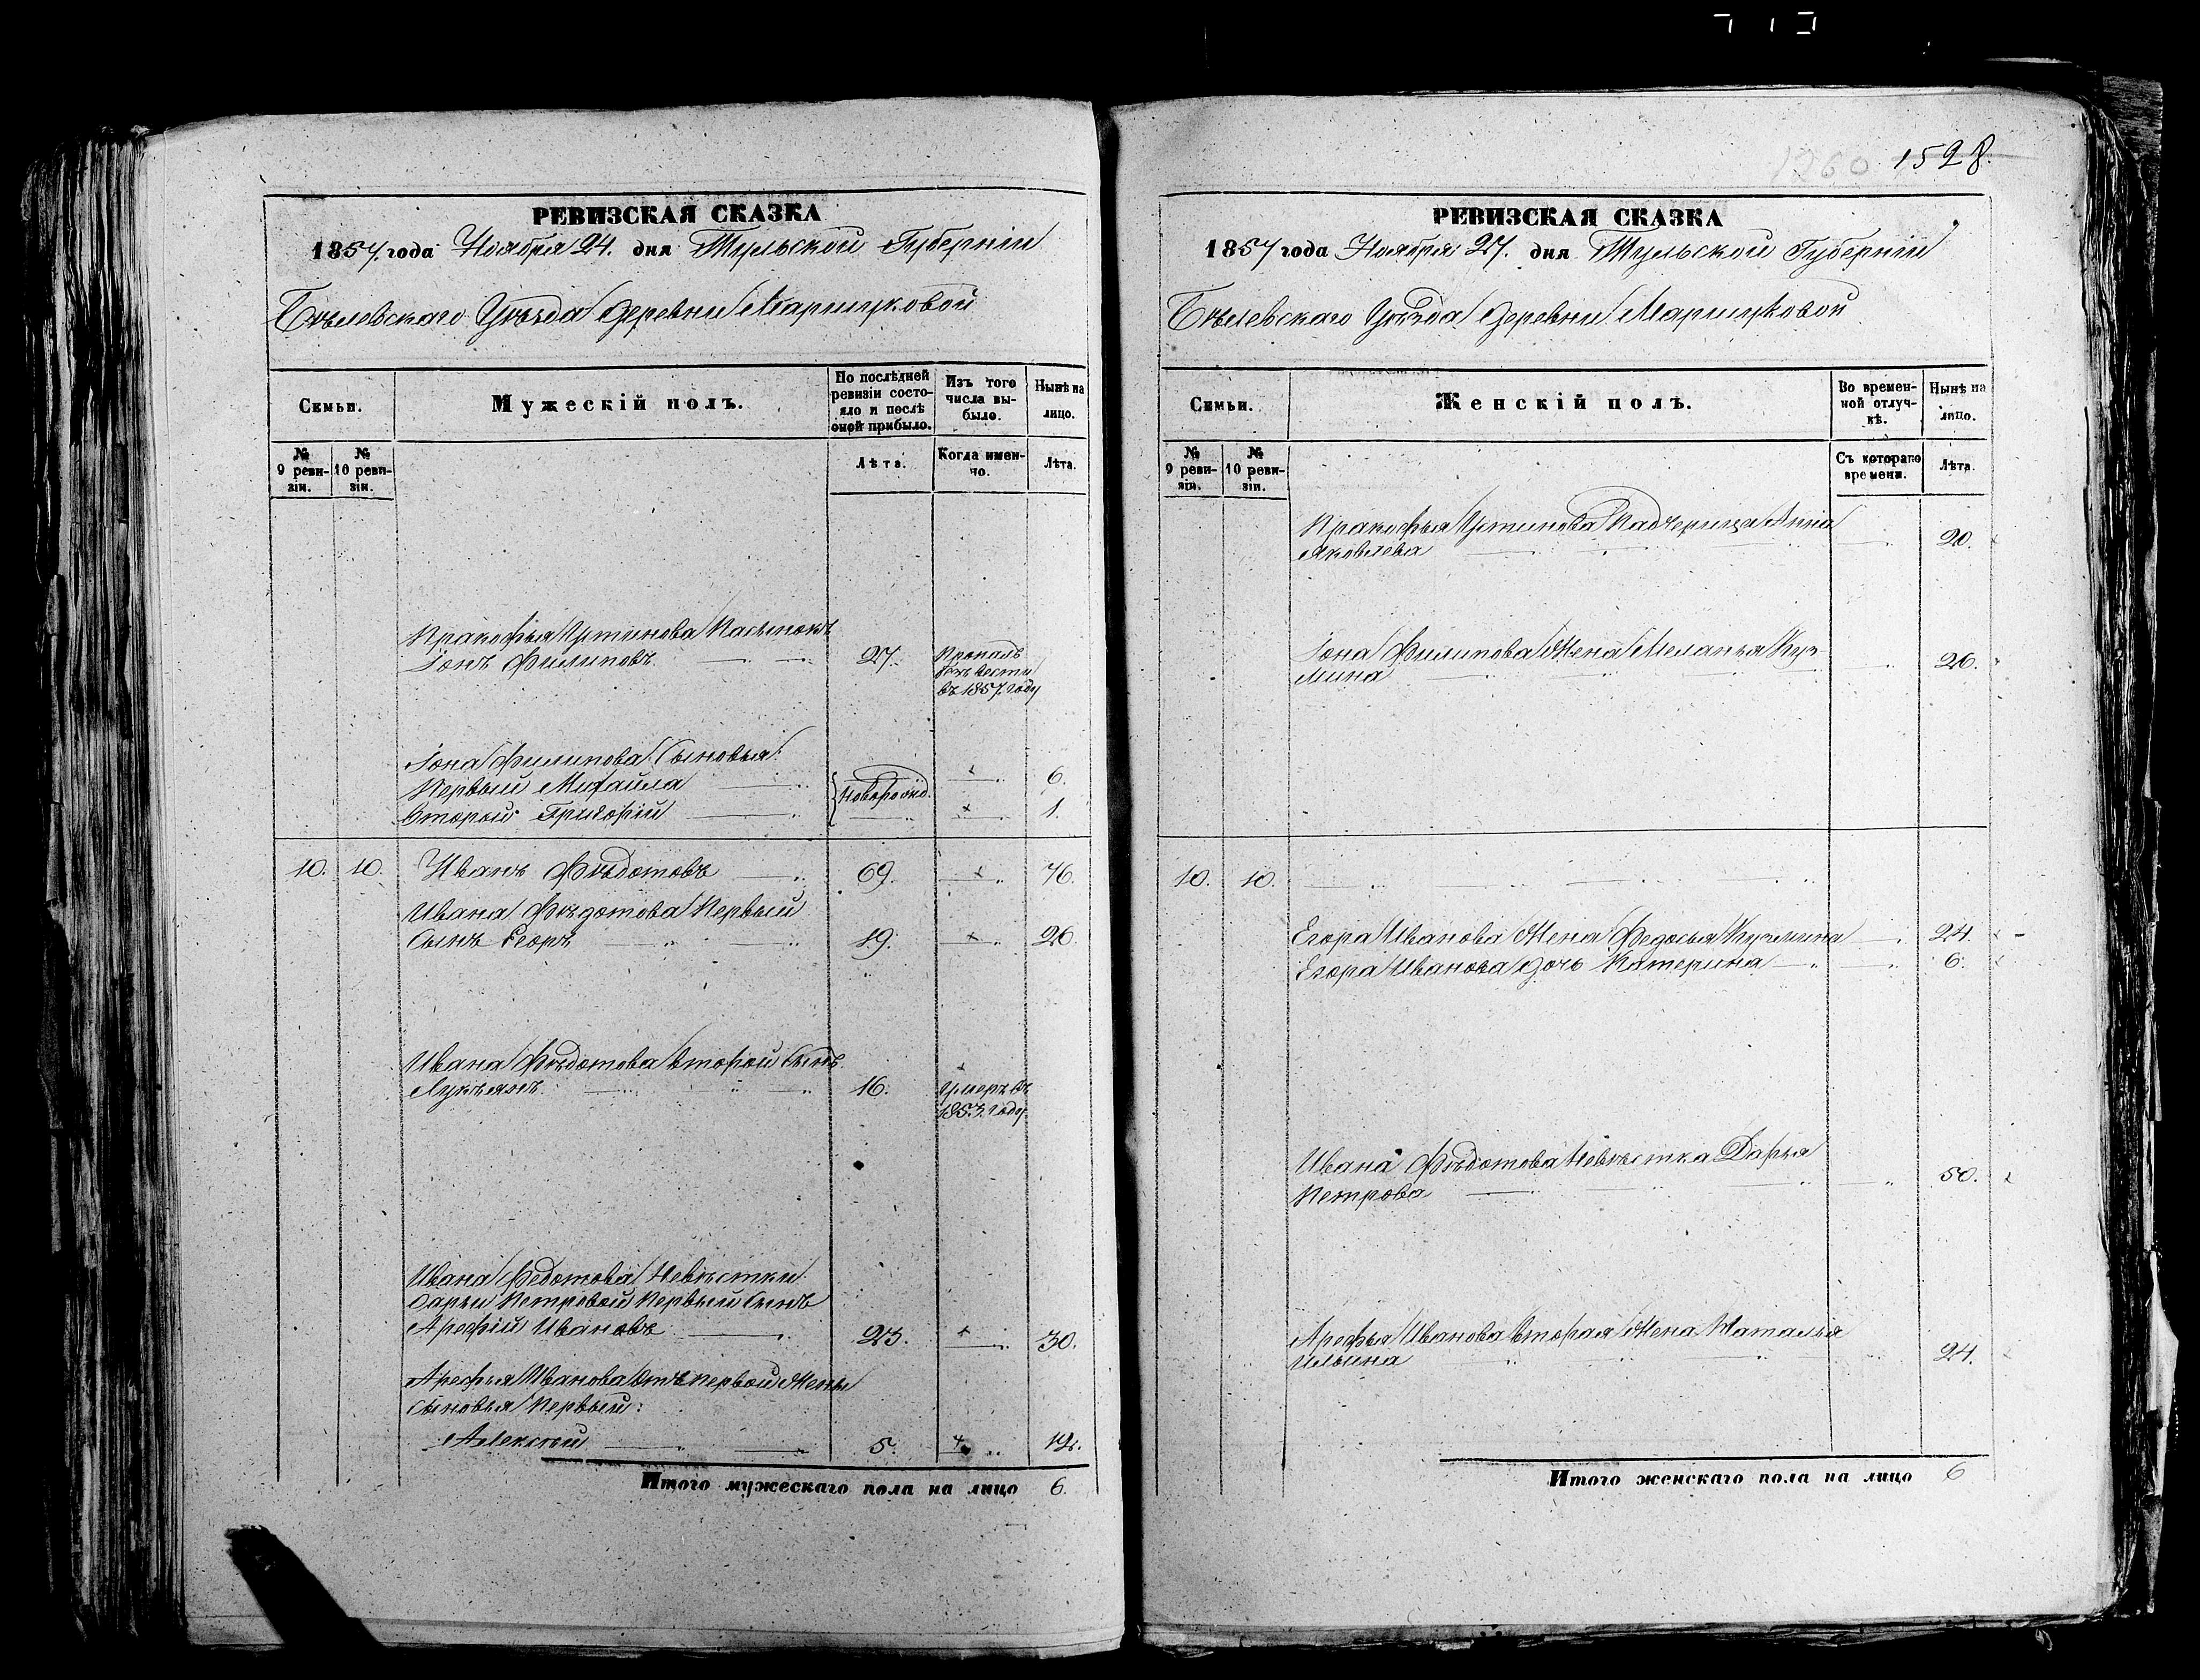 1260 1528.
РЕВИЗСКАЯ СКАЗКА
1857. года Ноября 24. дня Тульской Губерніи
Бѣлевскаго Уѣзда Деревни Марицковой
Семьи.
Мужескій полъ.
По послѣдней ревизіи состояло и послѣ оной прибыло.
Изъ того числа выбыло.
Нынѣ на лицо.
№ 9 ревизіи.
№ 10 ревизіи.
Лѣта.
Когда именно.
Лѣта.
Пракофья Устинова Пасынокъ
Іонъ Филиповъ 27. Пропалъ
безъ вести
въ 1857. году
Іона Филипова Сыновья:
Первый Михайла Новорожд. 6.
Второй Григорій 1.
10. 10. Иванъ Фѣдотовъ 69. 76.
Ивана Фѣдотова Первый
Сынъ Егоръ 19. 26.
Ивана Фѣдотова Второй Сынъ
Лукъянъ 16. Умеръ въ
1853. году.
Ивана Федотова Невѣстки
Дарьи Петровой Первый Сынъ
Арефій Ивановъ 23. 30.
Арефья Иванова отъ первой Жены
Сыновья Первый:
Алексѣй 5. 12.
Итого мужескаго пола на лицо 6.
РЕВИЗСКАЯ СКАЗКА
1857 года Ноября 27. дня Тульской Губерніи
Бѣлевскаго Уѣзда Деревни Марицковой
Семьи.
Женскій полъ.
Во временной отлучкѣ.
Нынѣ на лицо.
№ 9 ревизіи.
№ 10 ревизіи.
Съ котораго времени.
Лѣта.
Пракофья Устинова Падчерица Анна
Яковлева 20.
Іона Филипова Жена Меланья Куз-
мина 26.
10. 10.
Егора Иванова Жена Федосья Кузмина 24.
Егора Иванова дочь Катерина 6.
Ивана Фѣдотова Невѣстка Дарья
Петрова 50.
Арефья Иванова вторая Жена Наталья
Ильина 24.
Итого женскаго пола на лицо 6